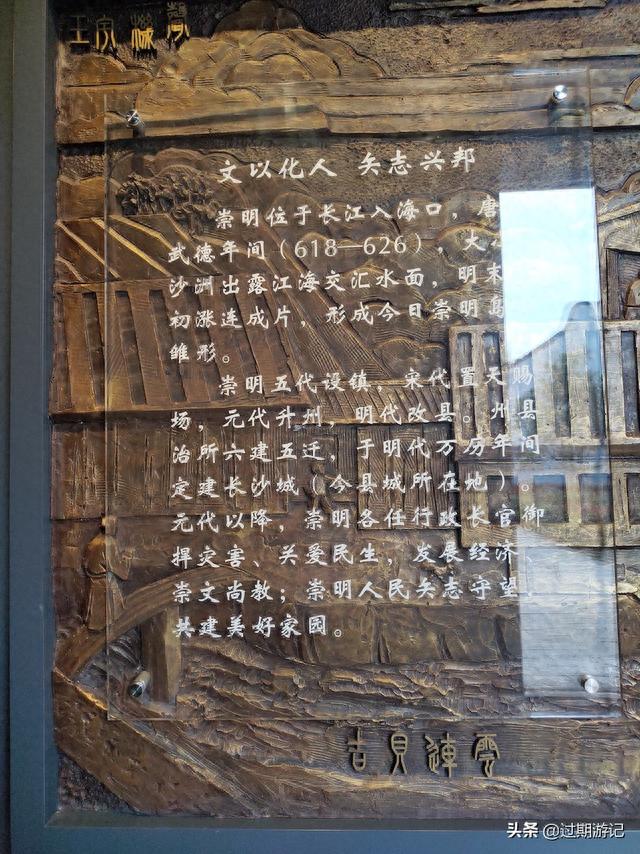 文以化人 矢志兴邦
崇明位于长江入海口，唐
武德年间（618—626），大
沙洲出露江海交汇水面，明末
初涨连成片，形成今日崇明岛
雏形。
崇明五代设镇，宋代置天赐
场，元代升州，明代改县。州县
治所六建五迁，于明代万历年间
定建长沙城（今县城所在地）。
元代以降，崇明各任行政长官御
捍灾害、关爱民生，发展经济、
崇文尚教；崇明人民矢志守望，
共建美好家园。
吉貝連雲
头条 @过期游记